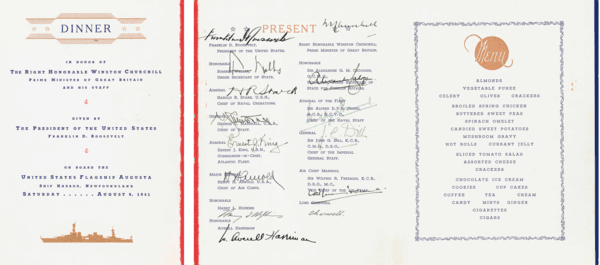 DINNER
IN HONOR OF
THE RIGHT HONORABLE WINSTON CHURCHILL
PRIME MINISTER OF GREAT BRITAIN
AND HIS STAFF
GIVEN BY
THE PRESIDENT OF THE UNITED STATES
FRANKLIN D. ROOSEVELT
ON BOARD THE
UNITED STATES FLAGSHIP AUGUSTA
SHIP HARBOR, NEWFOUNDLAND
SATURDAY ...... AUGUST 9, 1941
PRESENT
Franklin D Roosevelt
FRANKLIN D. ROOSEVELT,
PRESIDENT OF THE UNITED STATES.
HONORABLE
UNDER SECRETARY OF STATE.
ADMIRAL
H R Stark
HAROLD R. STARK, U.S.N.,
CHIEF OF NAVAL OPERATIONS.
GENERAL
CHIEF OF STAFF.
ADMIRAL
Ernest J. King
ERNEST J. KING, U.S.N.,
COMMANDER-IN-CHIEF,
ATLANTIC FLEET.
MAJOR
H. ARNOLD, U.S.A.,
CHIEF OF AIR CORPS.
HONORABLE
HARRY L. HOPKINS
Harry L Hopkins
HONORABLE
AVERELL HARRIMAN
W. Averell Harriman
RIGHT HONORABLE WINSTON CHURCHILL,
PRIME MINISTER OF GREAT BRITAIN.
HONORABLE
SIR ALEXANDER G. M. CADOGAN,
STATE FOR FOREIGN AFFAIRS.
ADMIRAL OF THE FLEET
SIR ALFRED D. P. R. POUND,
CHIEF OF THE NAVAL STAFF
GENERAL
SIR JOHN G. DILL, K.C.B.,
C.M.G., D.S.O.,
CHIEF OF THE IMPERIAL
GENERAL STAFF.
AIR CHIEF MARSHAL
SIR WILFRID R. FREEMAN, K.C.B.,
D.S.O., M.C.,
LORD CHERWELL
Cherwell
Menu
ALMONDS
VEGETABLE PUREE
CELERY OLIVES CRACKERS
BROILED SPRING CHICKEN
BUTTERED SWEET PEAS
SPINACH OMELET
CANDIED SWEET POTATOES
MUSHROOM GRAVY
HOT ROLLS CURRANT JELLY
SLICED TOMATO SALAD
ASSORTED CHEESE
CRACKERS
CHOCOLATE ICE CREAM
COOKIES CUP CAKES
COFFEE TEA CREAM
CANDY MINTS GINGER
CIGARETTES
CIGARS